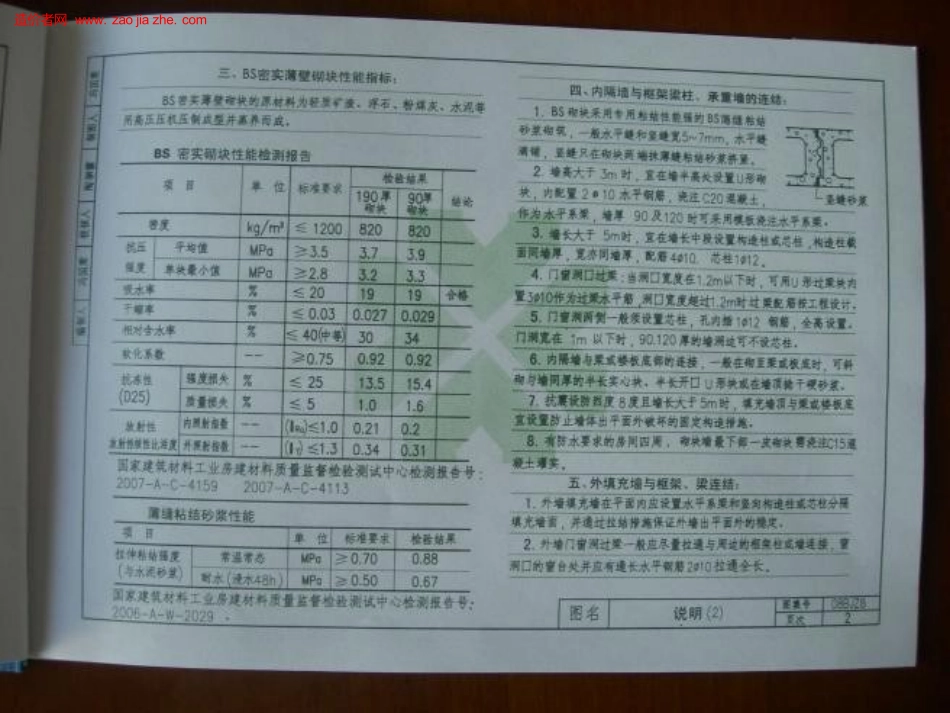 造价者网 www. zao jia zhe. com
三、BS密实薄壁砌块性能指标：
BS密实薄壁砌块的原材料为轻质矿渣、浮石、粉煤灰、水泥等
用高压压机压制成型并蒸养而成。
BS 密实砌块性能检测报告
项 目 单 位 标准要求 检验结果 结论
190厚砌块 90厚砌块
密度 kg/m³ ≤ 1200 820 820
抗压强度 平均值 MPa ≥3.5 3.7 3.9
单块最小值 MPa ≥2.8 3.2 3.3
吸水率 % ≤ 20 19 19 合格
干缩率 % ≤ 0.03 0.027 0.029
相对含水率 % ≤ 40(中等) 30 34
软化系数 -- ≥0.75 0.92 0.92
抗冻性(D25) 强度损失 % ≤ 25 13.5 15.4
质量损失 % ≤ 5 1.0 1.6
放射性 内照射指数 -- (IRa)≤1.0 0.21 0.2
外照射指数 -- (Iγ)≤1.3 0.34 0.31
国家建筑材料工业房建材料质量监督检验测试中心检测报告号：
2007-A-C-4159 2007-A-C-4113
薄缝粘结砂浆性能
项 目 单 位 标准要求 检验结果
拉伸粘结强度(与水泥砂浆) 常温常态 MPa ≥ 0.70 0.88
耐水(浸水48h) MPa ≥ 0.50 0.67
国家建筑材料工业房建材料质量监督检验测试中心检测报告号：
2006-A-W-2029
四、内隔墙与框架梁柱、承重墙的连结：
1. BS砌块采用专用粘结性能强的BS薄缝粘结
砂浆砌筑，一般水平缝和竖缝宽5~7mm，水平缝
满铺，竖缝只在砌块两端抹薄缝粘结砂浆挤紧。
竖缝砂浆
2. 墙高大于 3m时，宜在墙半高处设置U形砌
块，内配置 2φ10 水平钢筋，浇注C20混凝土，
作为水平系梁，墙厚 90及120时可采用模板浇注水平系梁。
3. 墙长大于 5m时，宜在墙长中段设置构造柱或芯柱，构造柱截
面同墙厚，宽亦同墙厚，配筋4φ10. 芯柱1φ12。
4. 门窗洞口过梁：当洞口宽度在1.2m以下时，可用U形过梁块内
置3φ10作为过梁水平筋，洞口宽度超过1.2m时过梁配筋按工程设计。
5. 门窗洞两侧一般须设置芯柱，孔内插1φ12 钢筋，全高设置。
门洞宽在 1m 以下时，90.120厚的墙洞边可不设芯柱。
6. 内隔墙与梁或楼板底部的连接，一般在砌至梁或板底时，可斜
砌与墙同厚的半长实心块、半长开口U形块或在墙顶捻干硬砂浆。
7. 抗震设防烈度 8度且墙长大于5m时，填充墙顶与梁或楼板底
宜设置防止墙体出平面外破坏的固定构造措施。
8. 有防水要求的房间四周，砌块墙最下部一皮砌块需浇注C15混
凝土灌实。
五、外填充墙与框架、梁连结：
1. 外墙填充墙在平面内应设置水平系梁和竖向构造柱或芯柱分隔
填充墙面，并通过拉结措施保证外墙出平面外的稳定。
2. 外墙门窗洞过梁一般应尽量拉通与周边的框架柱或墙连接，窗
洞口的窗台处并应有通长水平钢筋2φ10拉通全长。
图名 说明(2) 图集号 08BJZ8
页次 2